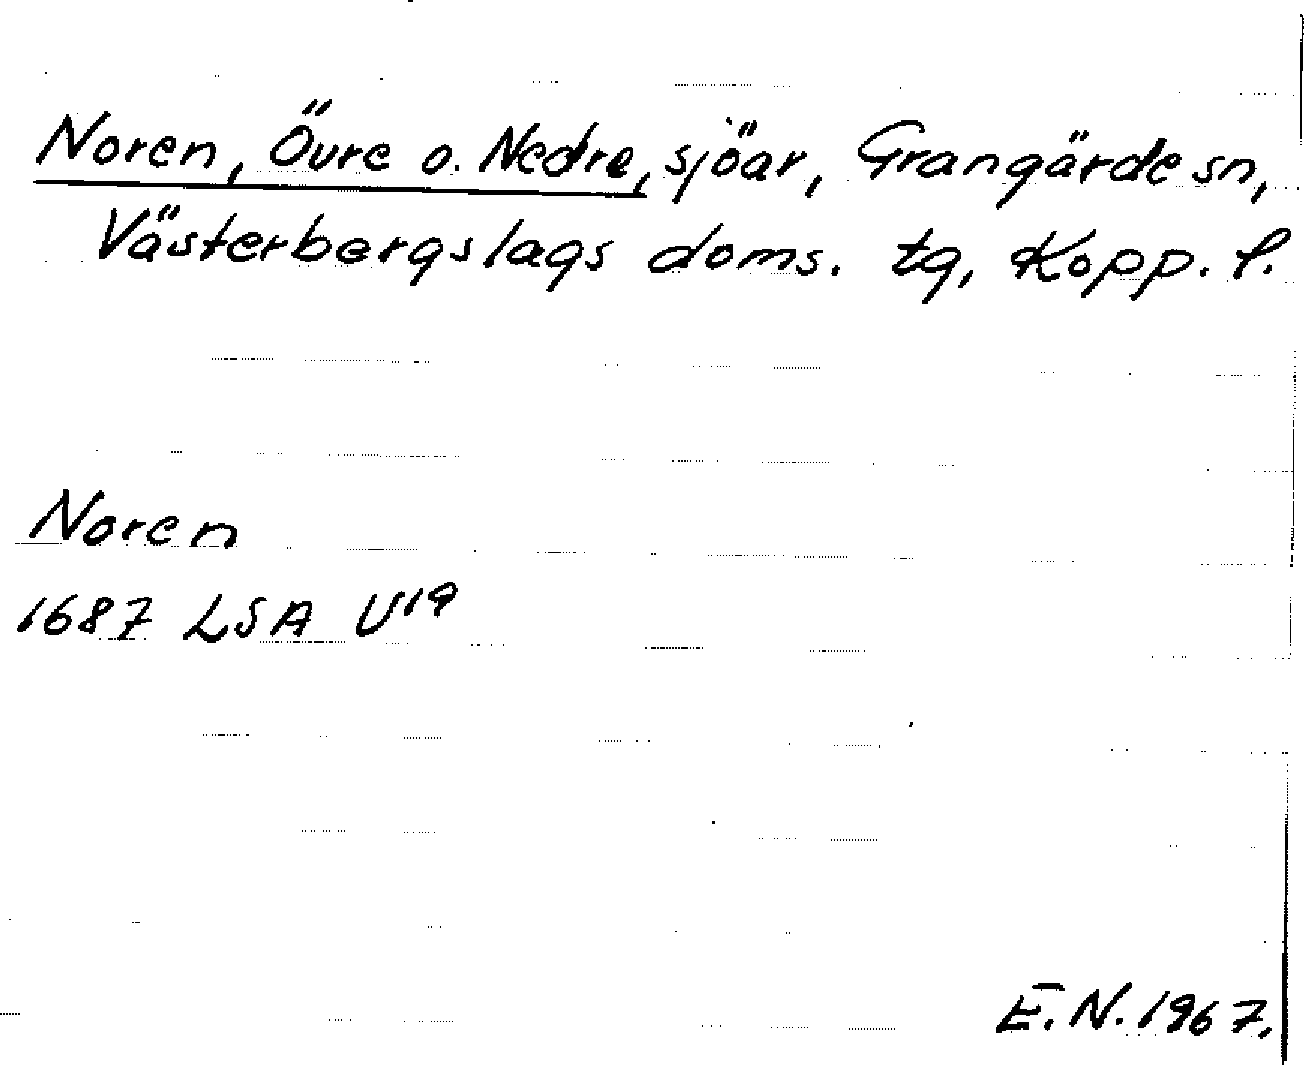 Noren, Övre o. Nedre, sjöar, Grangärde sn,
Västerbergslags doms. tg, Kopp. l.
Noren
1687 LSA U19
E.N. 1967.